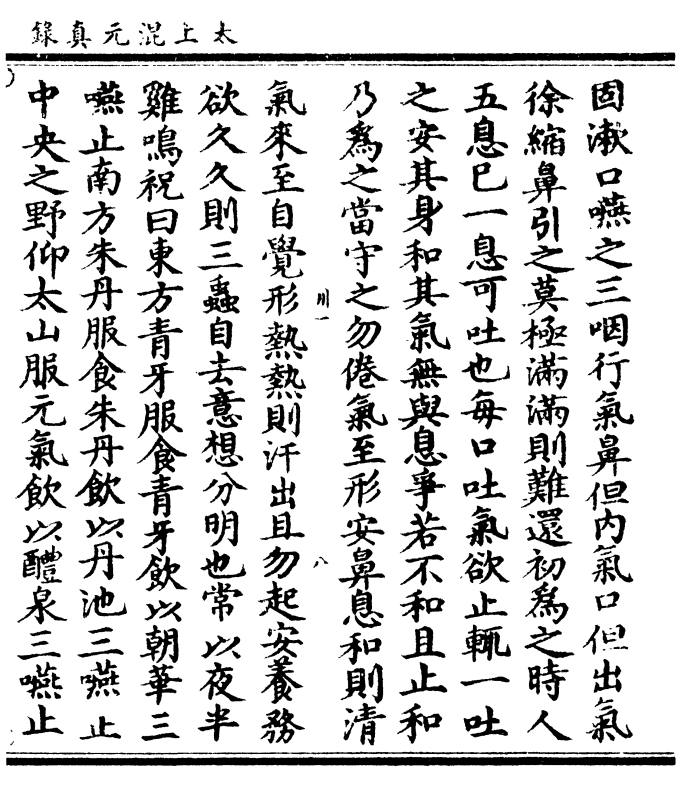 太上混元真錄
固漱口嚥之三咽行氣鼻但內氣口但出氣
徐縮鼻引之莫極滿滿則難還初爲之時人
五息巳一息可吐也每口吐氣欲止輒一吐
之安其身和其氣無與息爭若不和且止和
乃爲之當守之勿倦氣至形安鼻息和則清
川一
八
氣來至自覺形熱熱則汗出且勿起安養務
欲久久則三蟲自去意想分明也常以夜半
雞鳴祝曰東方青牙服食青牙飲以朝華三
嚥止南方朱丹服食朱丹飲以丹池三嚥止
中央之野仰太山服元氣飲以醴泉三嚥止